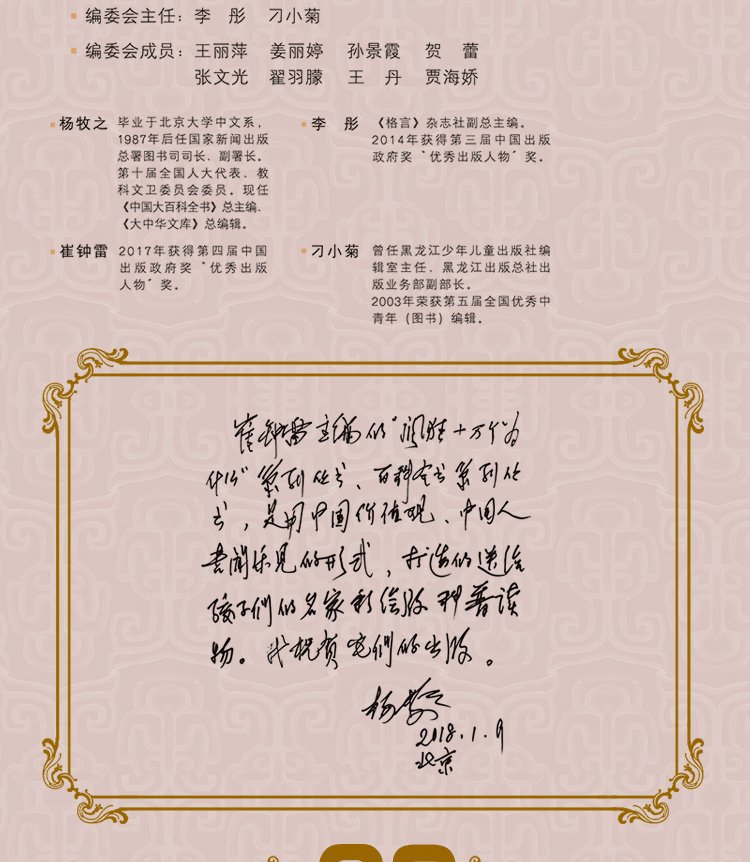 编委会主任：李 彤 刁小菊
编委会成员：王丽萍 姜丽婷 孙景霞 贺 蕾
张文光 翟羽朦 王 丹 贾海娇
杨牧之 毕业于北京大学中文系，
1987年后任国家新闻出版
总署图书司司长、副署长。
第十届全国人大代表、教
科文卫委员会委员。现任
《中国大百科全书》总主编、
《大中华文库》总编辑。
李 彤 《格言》杂志社副总主编。
2014年获得第三届中国出版
政府奖“优秀出版人物”奖。
崔钟雷 2017年获得第四届中国
出版政府奖“优秀出版
人物”奖。
刁小菊 曾任黑龙江少年儿童出版社编
辑室主任、黑龙江出版总社出
版业务部副部长。
2003年荣获第五届全国优秀中
青年（图书）编辑。
崔钟雷主编的“阅胜十万个为
什么”系列丛书、百科全书系列丛
书，是用中国价值观、中国人
喜闻乐见的形式，打造的送给
孩子們的名家彩绘版科普读
物。我祝贺它們的出版。
杨牧之
2018.1.9
北京